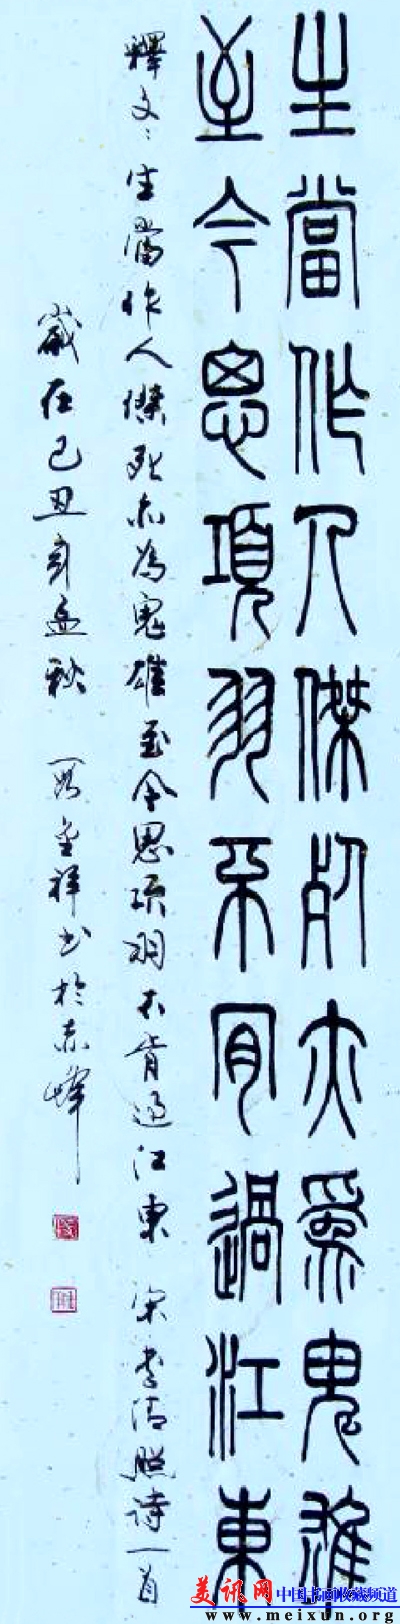 生當作人傑死亦為鬼雄
至今思項羽不肯過江東
釋文：生當作人傑死亦為鬼雄至今思項羽不肯過江東 宋李清照詩一首
歲在己丑年孟秋 段金祥書於赤峰
美讯网 中国书画收藏频道
www.meixun.org